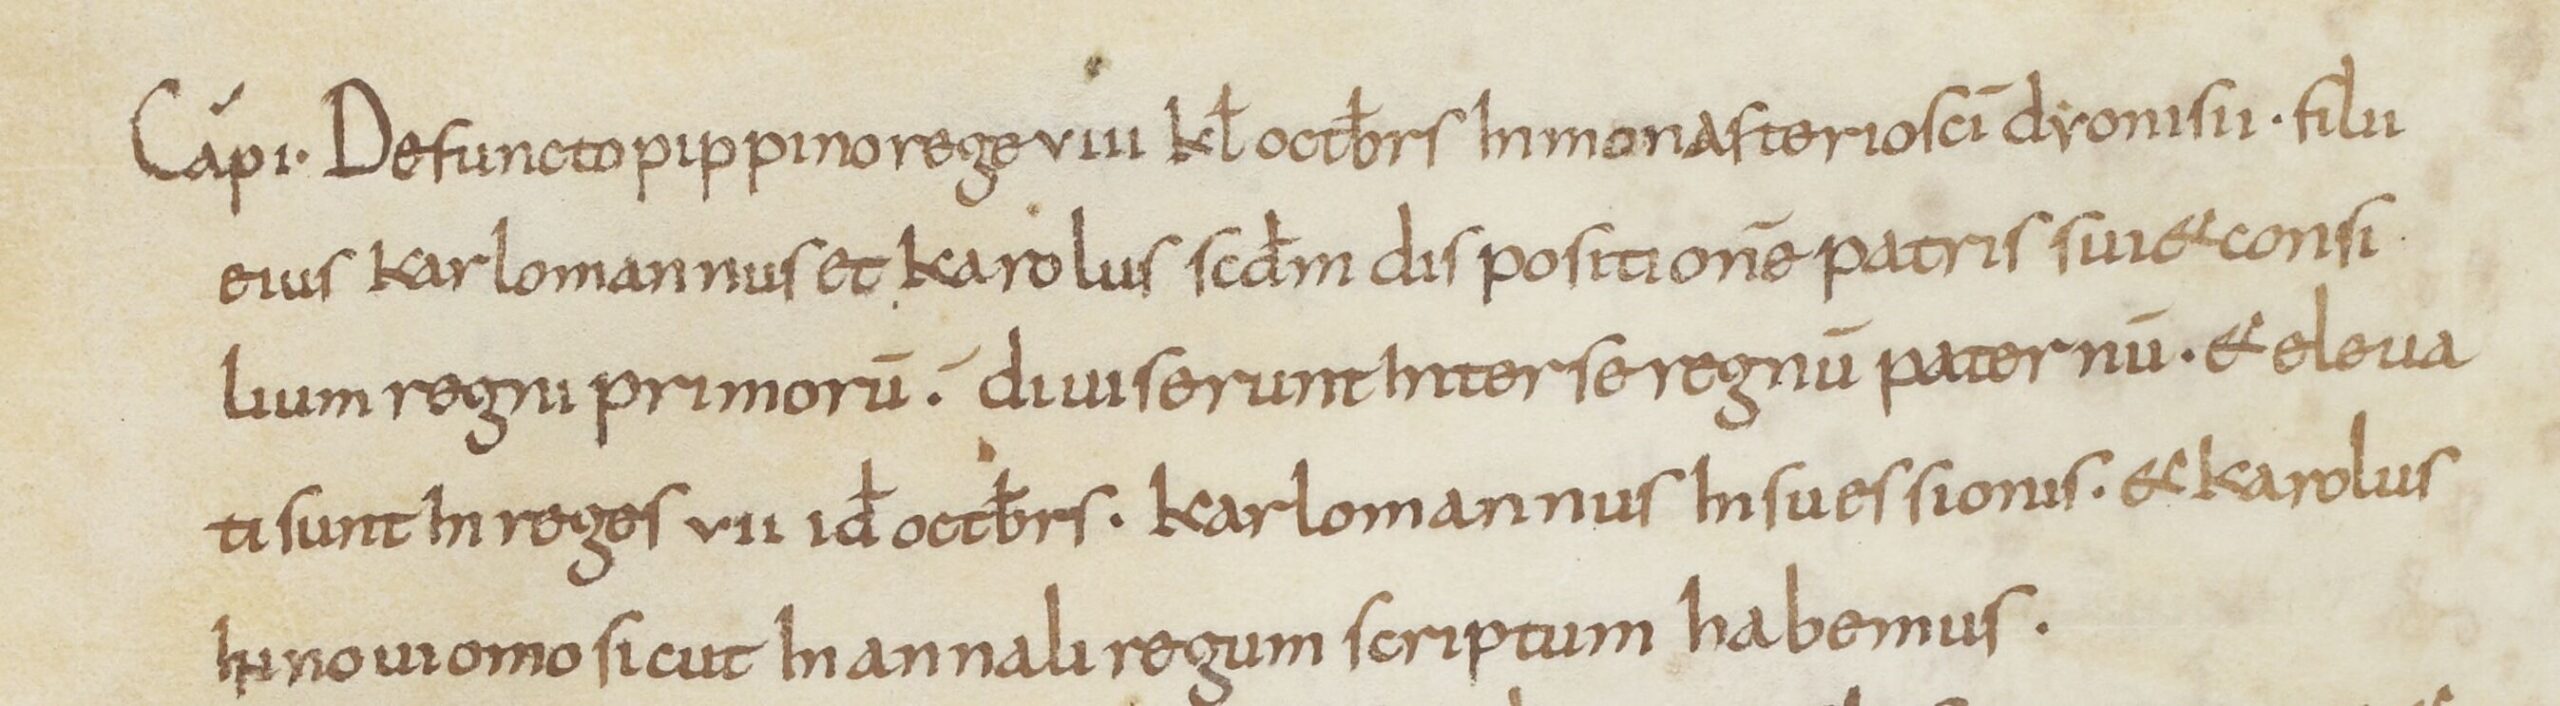 Cap̄ i. Defuncto pippino rege viii kł octƀrs In monasterio scī dyonisii. filii
eius karlomannus et karolus scđm dispositionē patris sui & consi
lium regni primorū. diuiserunt Inter se regnū paternū. & eleua
ti sunt In reges vii iđ octƀrs. karlomannus In suessionis. & karolus
In nouiomo sicut In annali regum scriptum habemus.